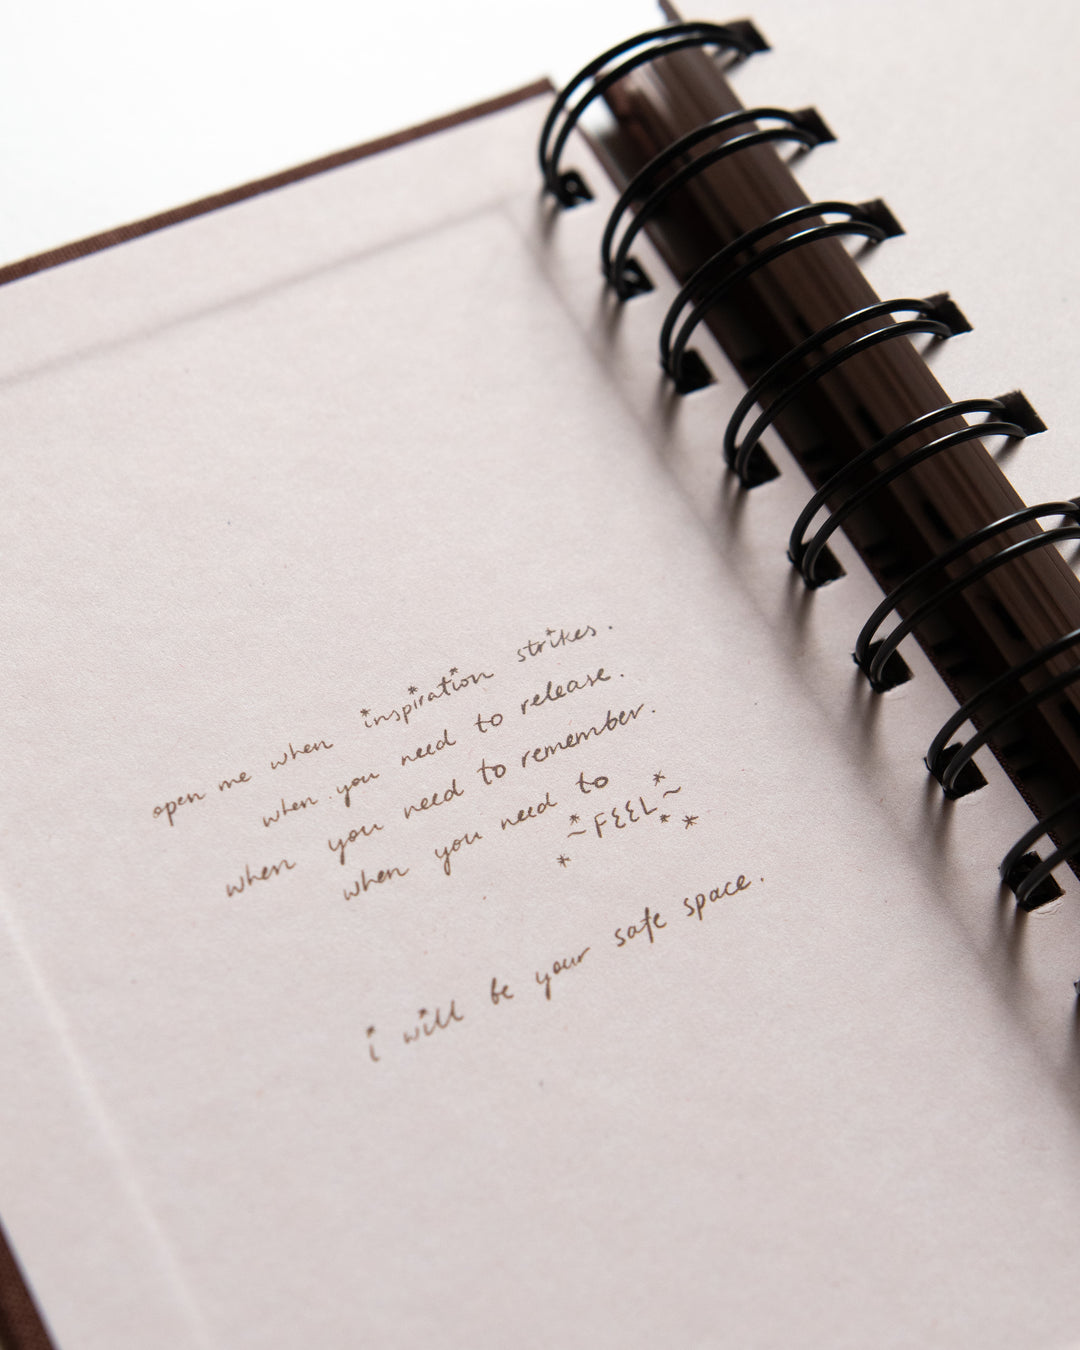 open me when inspiration strikes.
when you need to release.
when you need to remember.
when you need to
~FEEL~
i will be your safe space.